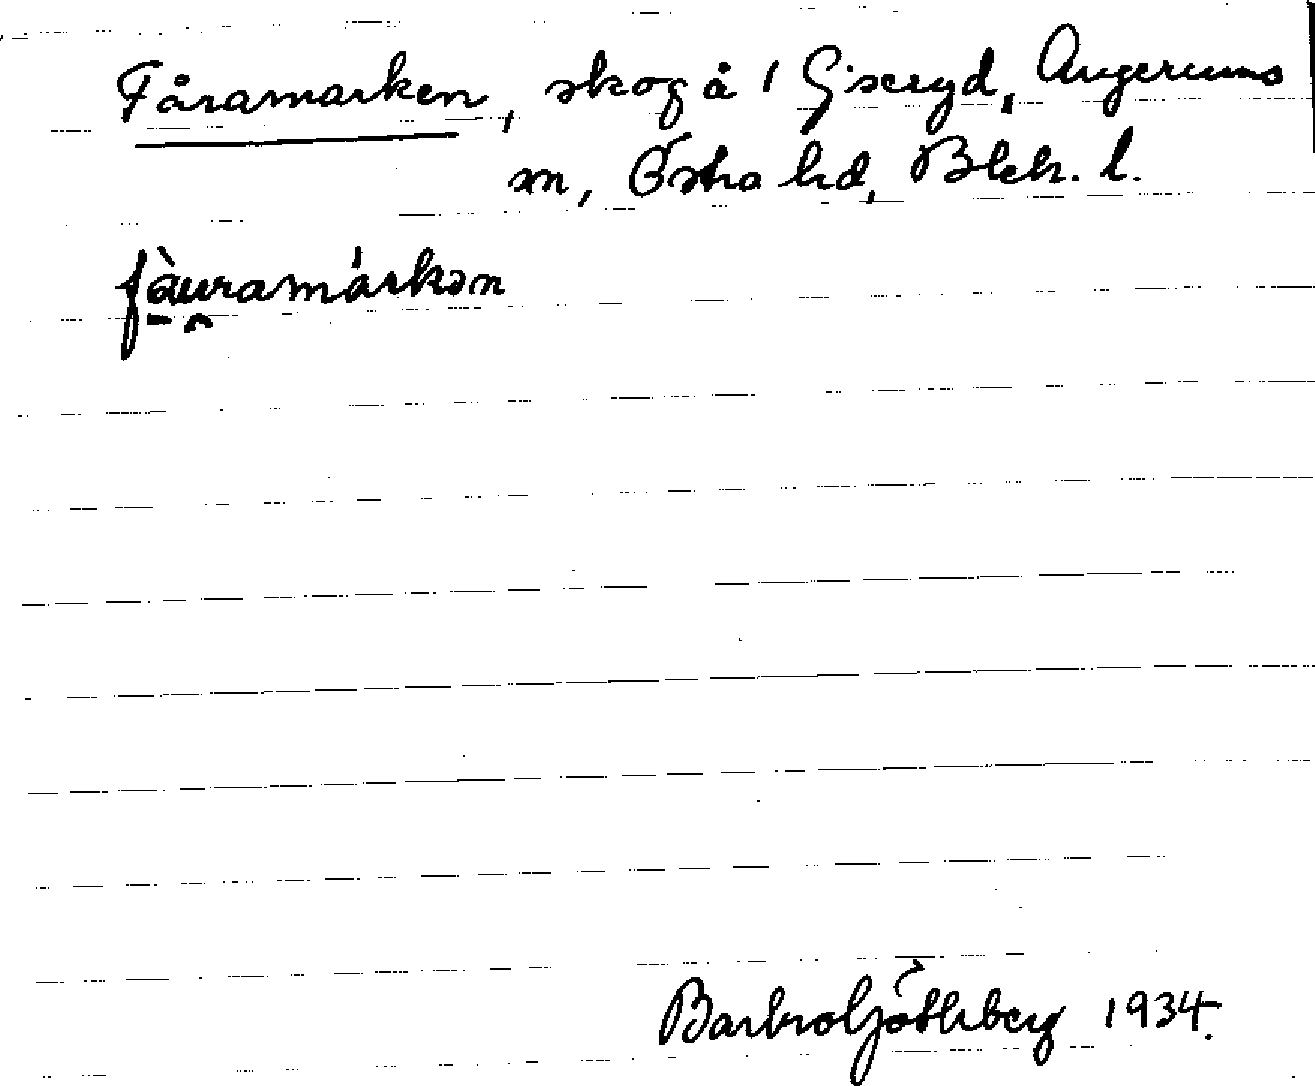 Fåramarken, skog å 1 Giseryd, Augerums
sn, Östra hd, Blek. l.
fàuramárkən
Barbro Götliberg 1934.